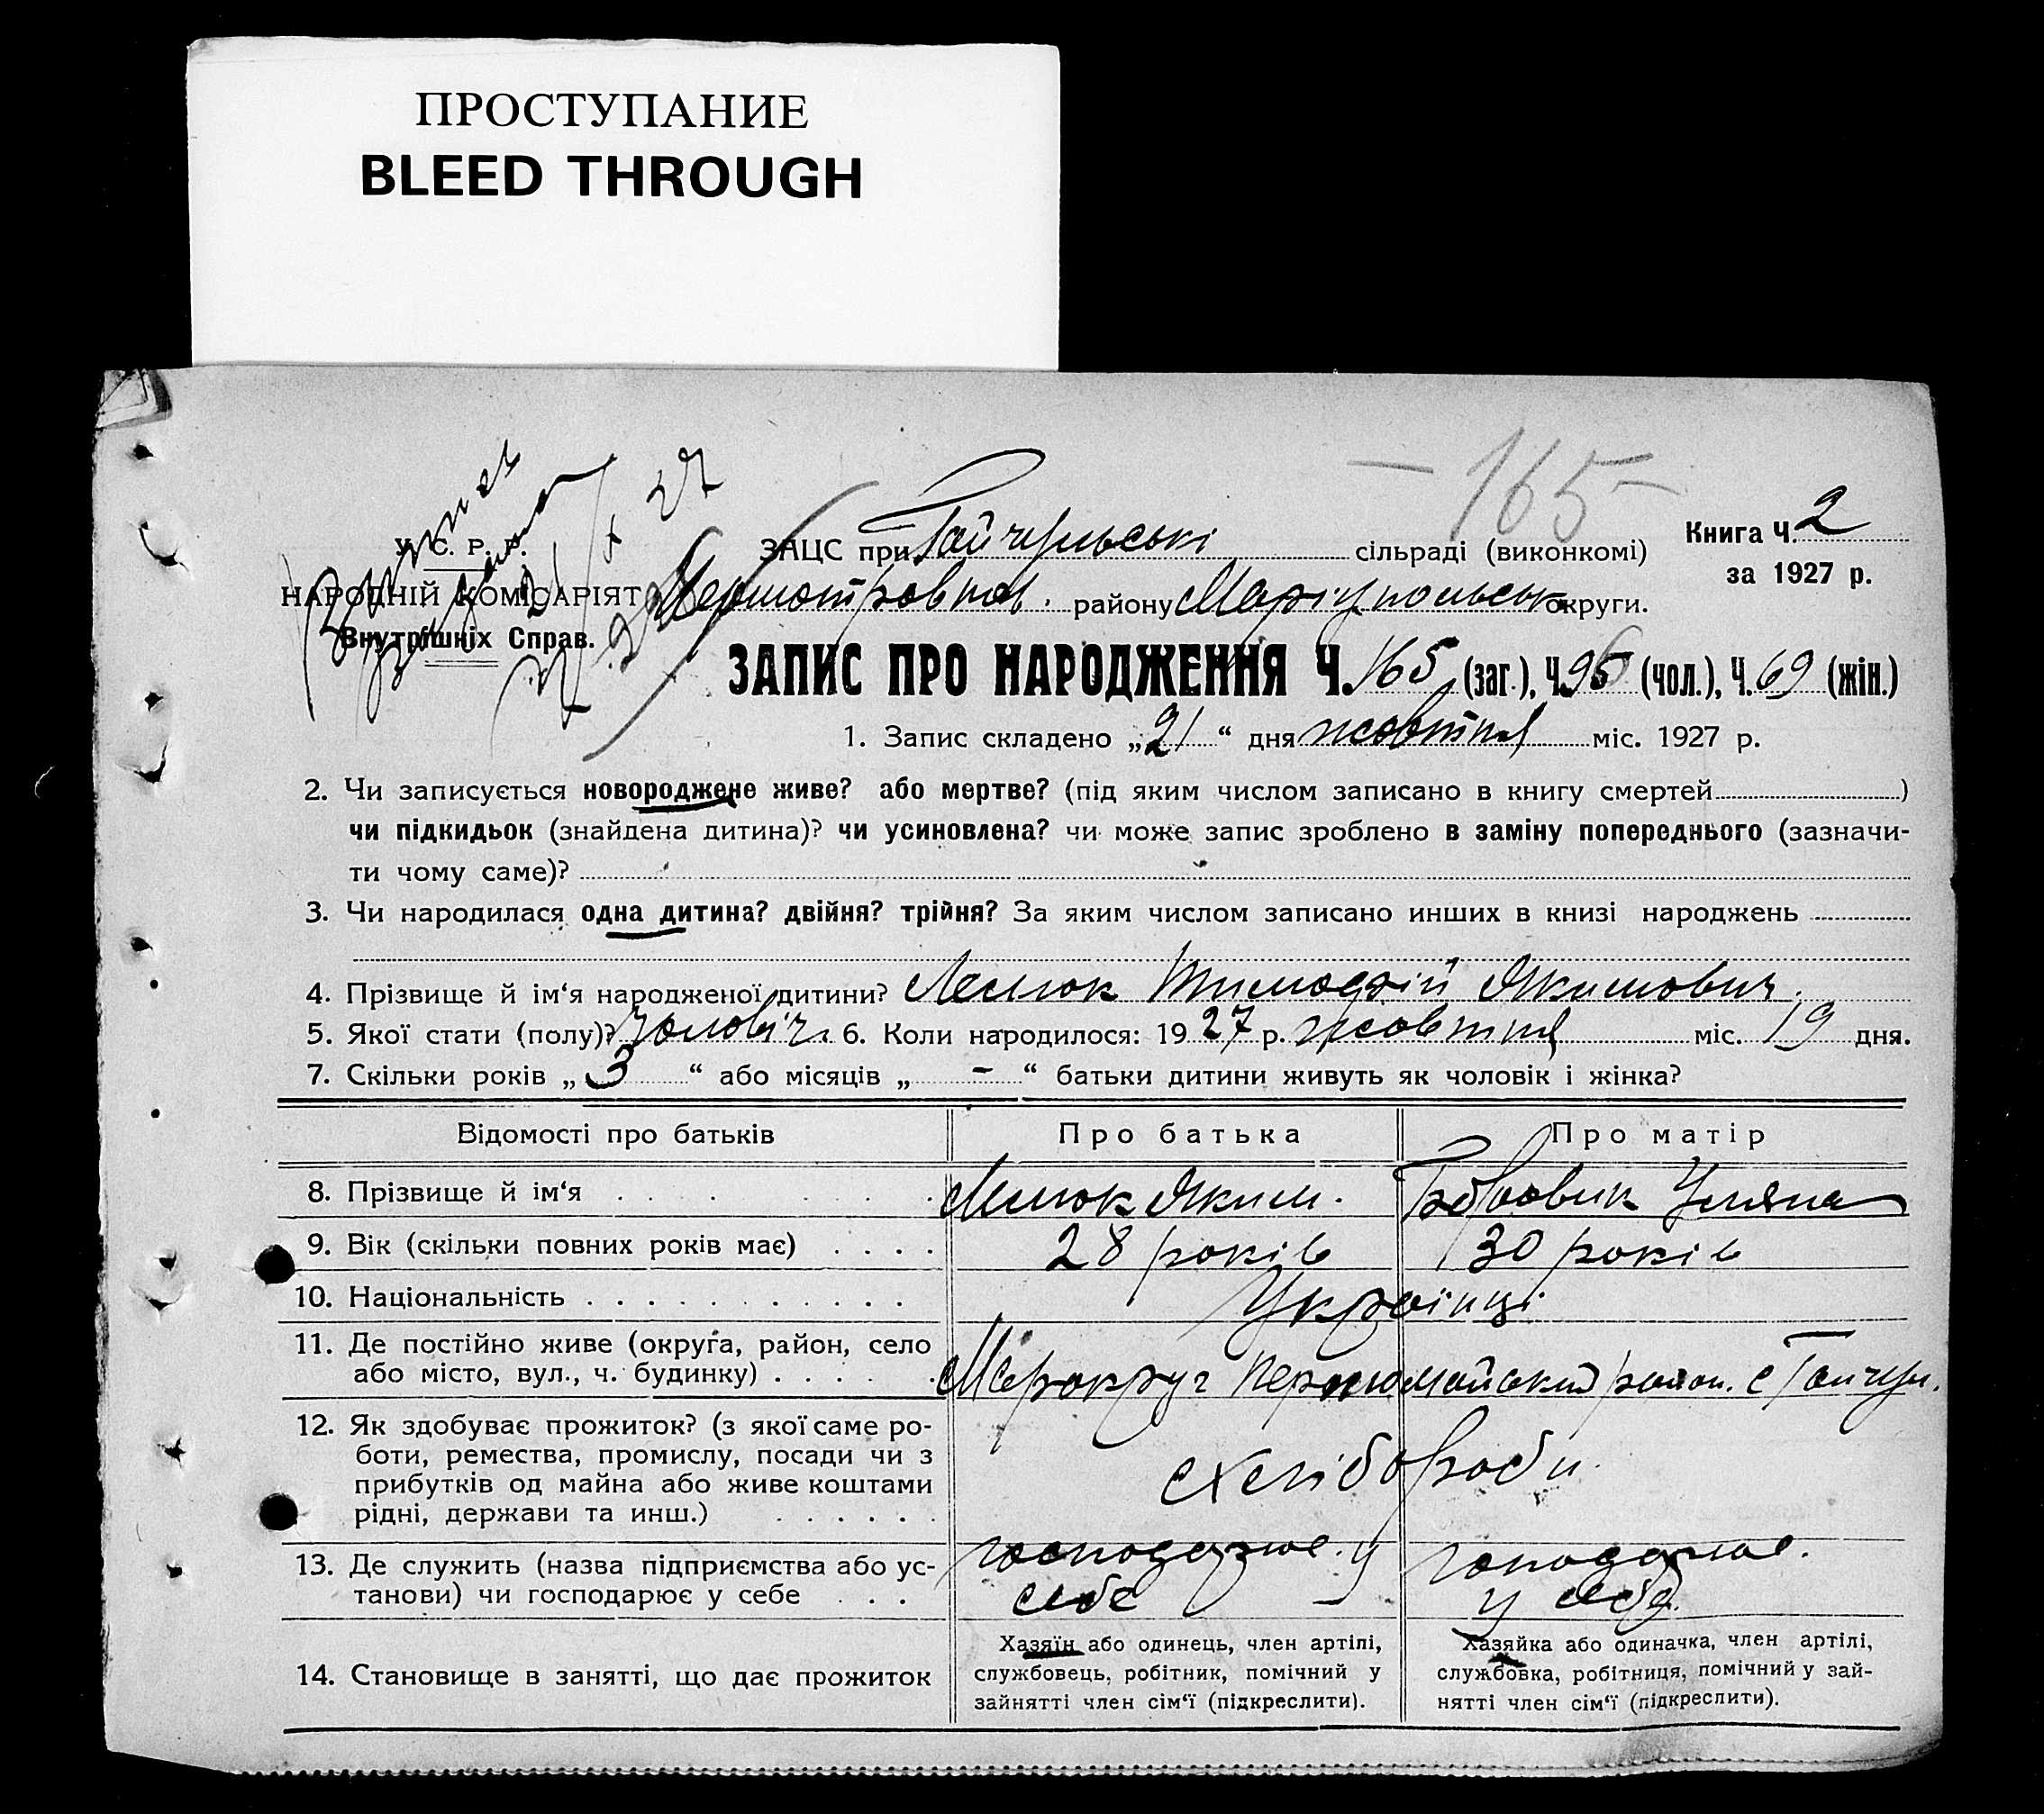 ПРОСТУПАНИЕ
BLEED THROUGH
165
У. С. Р. Р.
НАРОДНІЙ КОМІСАРІЯТ
Внутрішніх Справ.
ЗАЦС при Гайчульські сільраді (виконкомі)
Книга Ч. 2
за 1927 р.
району Маріупольськ округи.
ЗАПИС ПРО НАРОДЖЕННЯ Ч. 165 (заг.), Ч. 96 (чол.), Ч. 69 (жін.)
1. Запис складено „21“ дня жовтня міс. 1927 р.
2. Чи записується новороджене живе? або мертве? (під яким числом записано в книгу смертей )
чи підкидьок (знайдена дитина)? чи усиновлена? чи може запис зроблено в заміну попереднього (зазначи-
ти чому саме)?
3. Чи народилася одна дитина? двійня? трійня? За яким числом записано инших в книзі народжень
4. Прізвище й ім‘я народженої дитини? Тимофій Якимович.
5. Якої стати (полу)? чоловіч. 6. Коли народилося: 1927 р. жовтня міс. 19 дня.
7. Скільки років „3“ або місяців „-“ батьки дитини живуть як чоловік і жінка?
Відомості про батьків Про батька Про матір
8. Прізвище й ім‘я Яким. Уляна
9. Вік (скільки повних років має) 28 років 30 років
10. Національність Українці
11. Де постійно живе (округа, район, село
або місто, вул., ч. будинку) Маропкруг район. с Гайчул.
12. Як здобуває прожиток? (з якої саме ро-
боти, ремества, промислу, посади чи з
прибутків од майна або живе коштами
рідні, держави та инш.)
хлібороби.
13. Де служить (назва підприємства або ус-
танови) чи господарює у себе
господарює. у
себе
господарює.
у себе.
14. Становище в занятті, що дає прожиток
Хазяїн або одинець, член артілі,
службовець, робітник, помічний у
зайнятті член сім‘ї (підкреслити).
Хазяйка або одиначка, член артілі,
службовка, робітниця, помічний у зай-
нятті член сім‘ї (підкреслити).